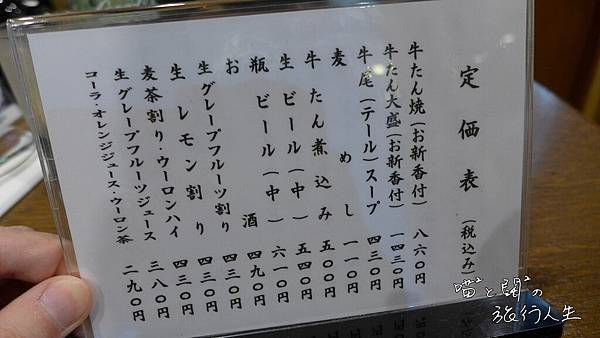 定価表(税込み)
牛たん焼(お新香付) 八六〇円
牛たん大盛(お新香付) 一四三〇円
牛尾(テール)スープ 四三〇円
麦めし 一一〇円
牛たん煮込み 五五〇円
生ビール(中) 五四〇円
瓶ビール(中) 六一〇円
お酒 四九〇円
生グレープフルーツ割り 四三〇円
生レモン割り 四三〇円
麦茶割り・ウーロンハイ 四三〇円
生グレープフルーツジュース 三八〇円
コーラ・オレンジジュース・ウーロン茶 二九〇円
喵と鬍の
旅行人生